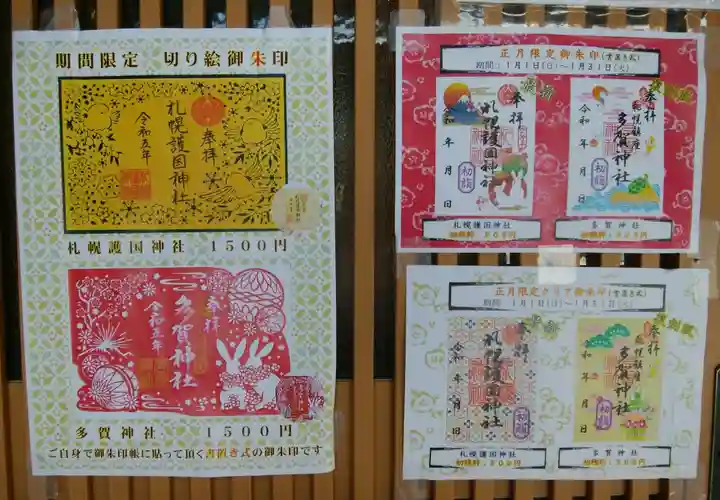 期間限定 切り絵御朱印
奉拝
札幌護国神社
令和五年
札幌護国神社 1500円
奉拝
多賀神社
令和五年
多賀神社 1500円
ご自身で御朱印帳に貼って頂く書置き式の御朱印です
正月限定御朱印(書置き式)
期間:1月1日(日)~1月31日(火)
奉拝
札幌護国神社
令和 年 月 日
初詣
奉拝
札幌鎮座
多賀神社
令和 年 月 日
初詣
札幌護国神社
多賀神社
正月限定クリア御朱印(書置き式)
期間:1月1日(日)~1月31日(火)
奉拝
札幌護国神社
令和 年 月 日
初詣
奉拝
札幌鎮座
多賀神社
令和 年 月 日
初詣
札幌護国神社
多賀神社